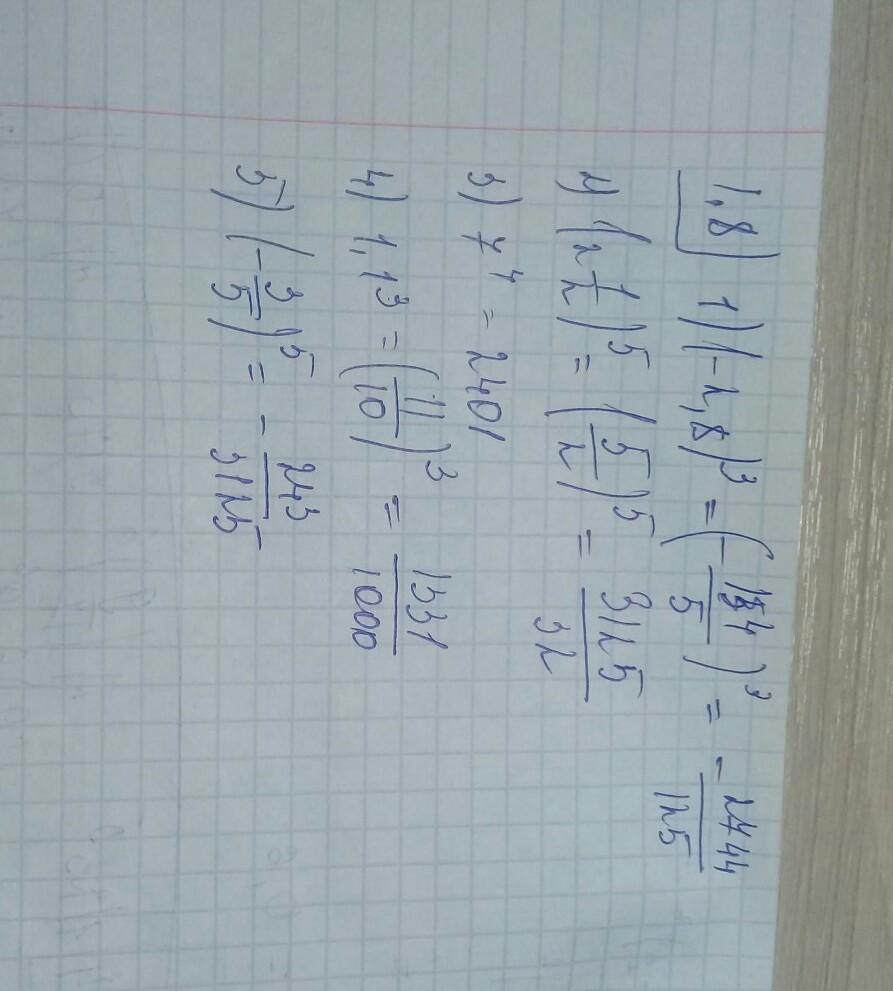 1.8) 1) (-2,8)³ = (-14/5)³ = -2744/125
2) (2 1/2)⁵ = (5/2)⁵ = 3125/32
3) 7⁴ = 2401
4) 1,1³ = (11/10)³ = 1331/1000
5) (-3/5)⁵ = -243/3125